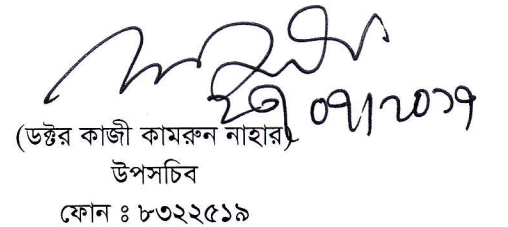 ২৩/০৭/২০১৭
(ডক্টর কাজী কামরুন নাহার)
উপসচিব
ফোন ঃ ৮৩২২৫১৯